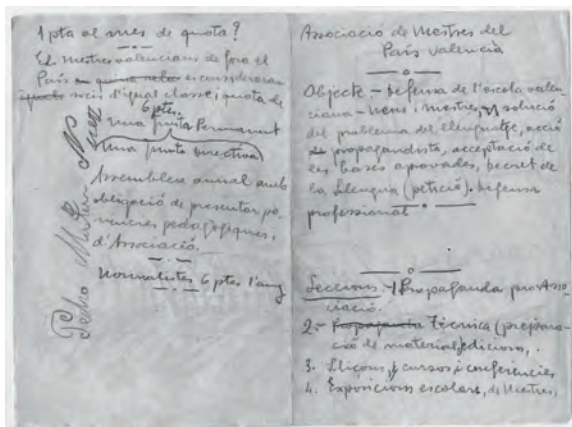 1 pta al mes de quota?
El mestres valencians de fora el
País en quina rebre es consideraran
iguals socis d'igual classe i quota de
6 ptes.
Una Junta Permanent
Una Junta Directiva
Assemblea anual amb
obligació de presentar po-
nencies pedagògiques i
d'Associació.
Normalistes 6 ptes l'any
Pedro
Associació de Mestres del
País Valencià
Objecte - Defensa de l'escola valen-
ciana - nens i mestres, solució
del problema del llenguatge, acció
de propagandista, acceptació de
les bases aprovades, Decret de
la Llengua (petició). Defensa
professional
Seccions - 1 Propaganda pro Asso-
ciació.
2.- Propaganda Tècnica (prepara-
ció de material, edicions,.
3. Lliçons, cursos i conferències
4. Exposicions escolars, de Mestres,